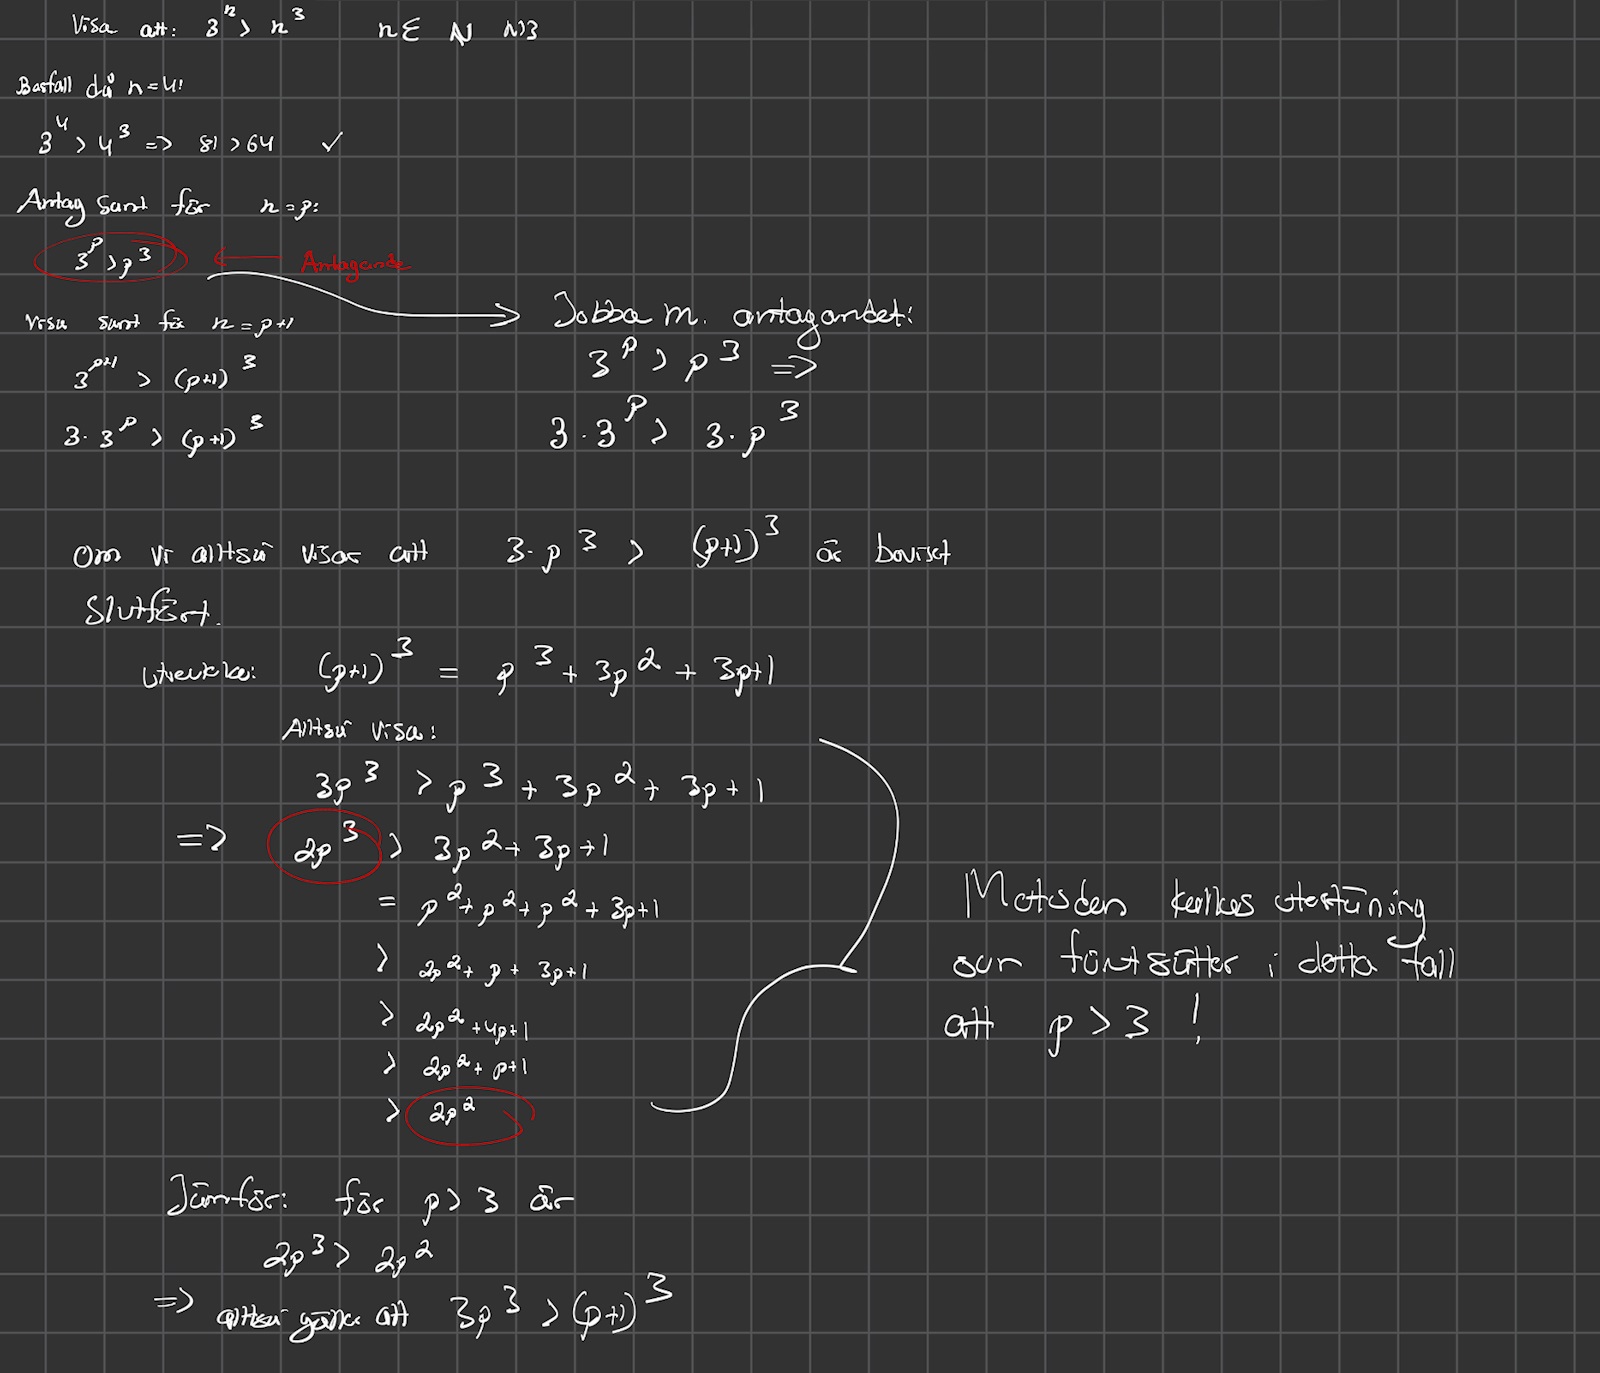 Visa att: 3^n > n^3 n ∈ N n>3
Basfall då n=4:
3^4 > 4^3 => 81 > 64 ✓
Antag sant för n=p:
3^p > p^3 ← Antagande
Visa sant för n=p+1
Jobba m. antagandet:
3^{p+1} > (p+1)^3
3^p > p^3 =>
3·3^p > (p+1)^3
3·3^p > 3·p^3
Om vi alltså visar att 3·p^3 > (p+1)^3 är beviset
Slutfört.
Utveckla: (p+1)^3 = p^3 + 3p^2 + 3p+1
Alltså visa:
3p^3 > p^3 + 3p^2 + 3p + 1
=> 2p^3 > 3p^2 + 3p + 1
= p^2 + p^2 + p^2 + 3p+1
> 2p^2 + p + 3p+1
> 2p^2 + 4p+1
> 2p^2 + p+1
> 2p^2
Metoden kallas utestäning
som förutsätter i detta fall
att p > 3 !
Jämför: för p > 3 är
2p^3 > 2p^2
=> alltså gäller att 3p^3 > (p+1)^3